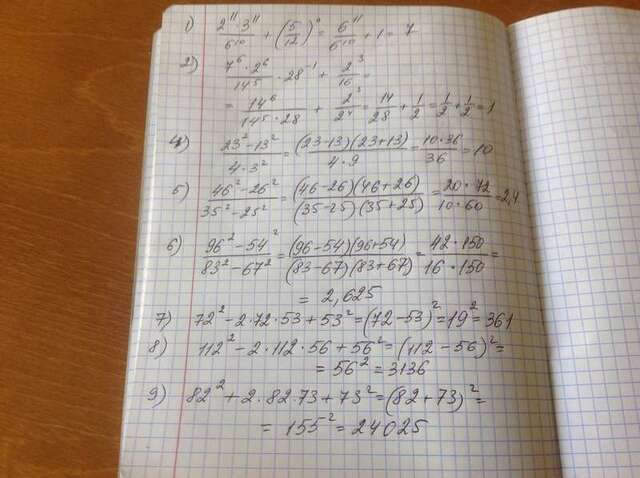 1) (2¹¹·3¹¹)/6¹⁰ + (5/12)⁰ = 6¹¹/6¹⁰ + 1 = 7
2) (7⁶·2⁶)/14⁵ · 28⁻¹ + 2³/16 =
= 14⁶/(14⁵·28) + 2³/2⁴ = 14/28 + 1/2 = 1/2 + 1/2 = 1
4) (23²-13²)/(4·3²) = (23-13)(23+13)/(4·9) = (10·36)/36 = 10
5) (46²-26²)/(35²-25²) = (46-26)(46+26)/(35-25)(35+25) = (20·72)/(10·60) = 2,4
6) (96²-54²)/(83²-67²) = (96-54)(96+54)/(83-67)(83+67) = (42·150)/(16·150) =
= 2,625
7) 72²-2·72·53+53² = (72-53)² = 19² = 361
8) 112²-2·112·56+56² = (112-56)² =
= 56² = 3136
9) 82²+2·82·73+73² = (82+73)² =
= 155² = 24025